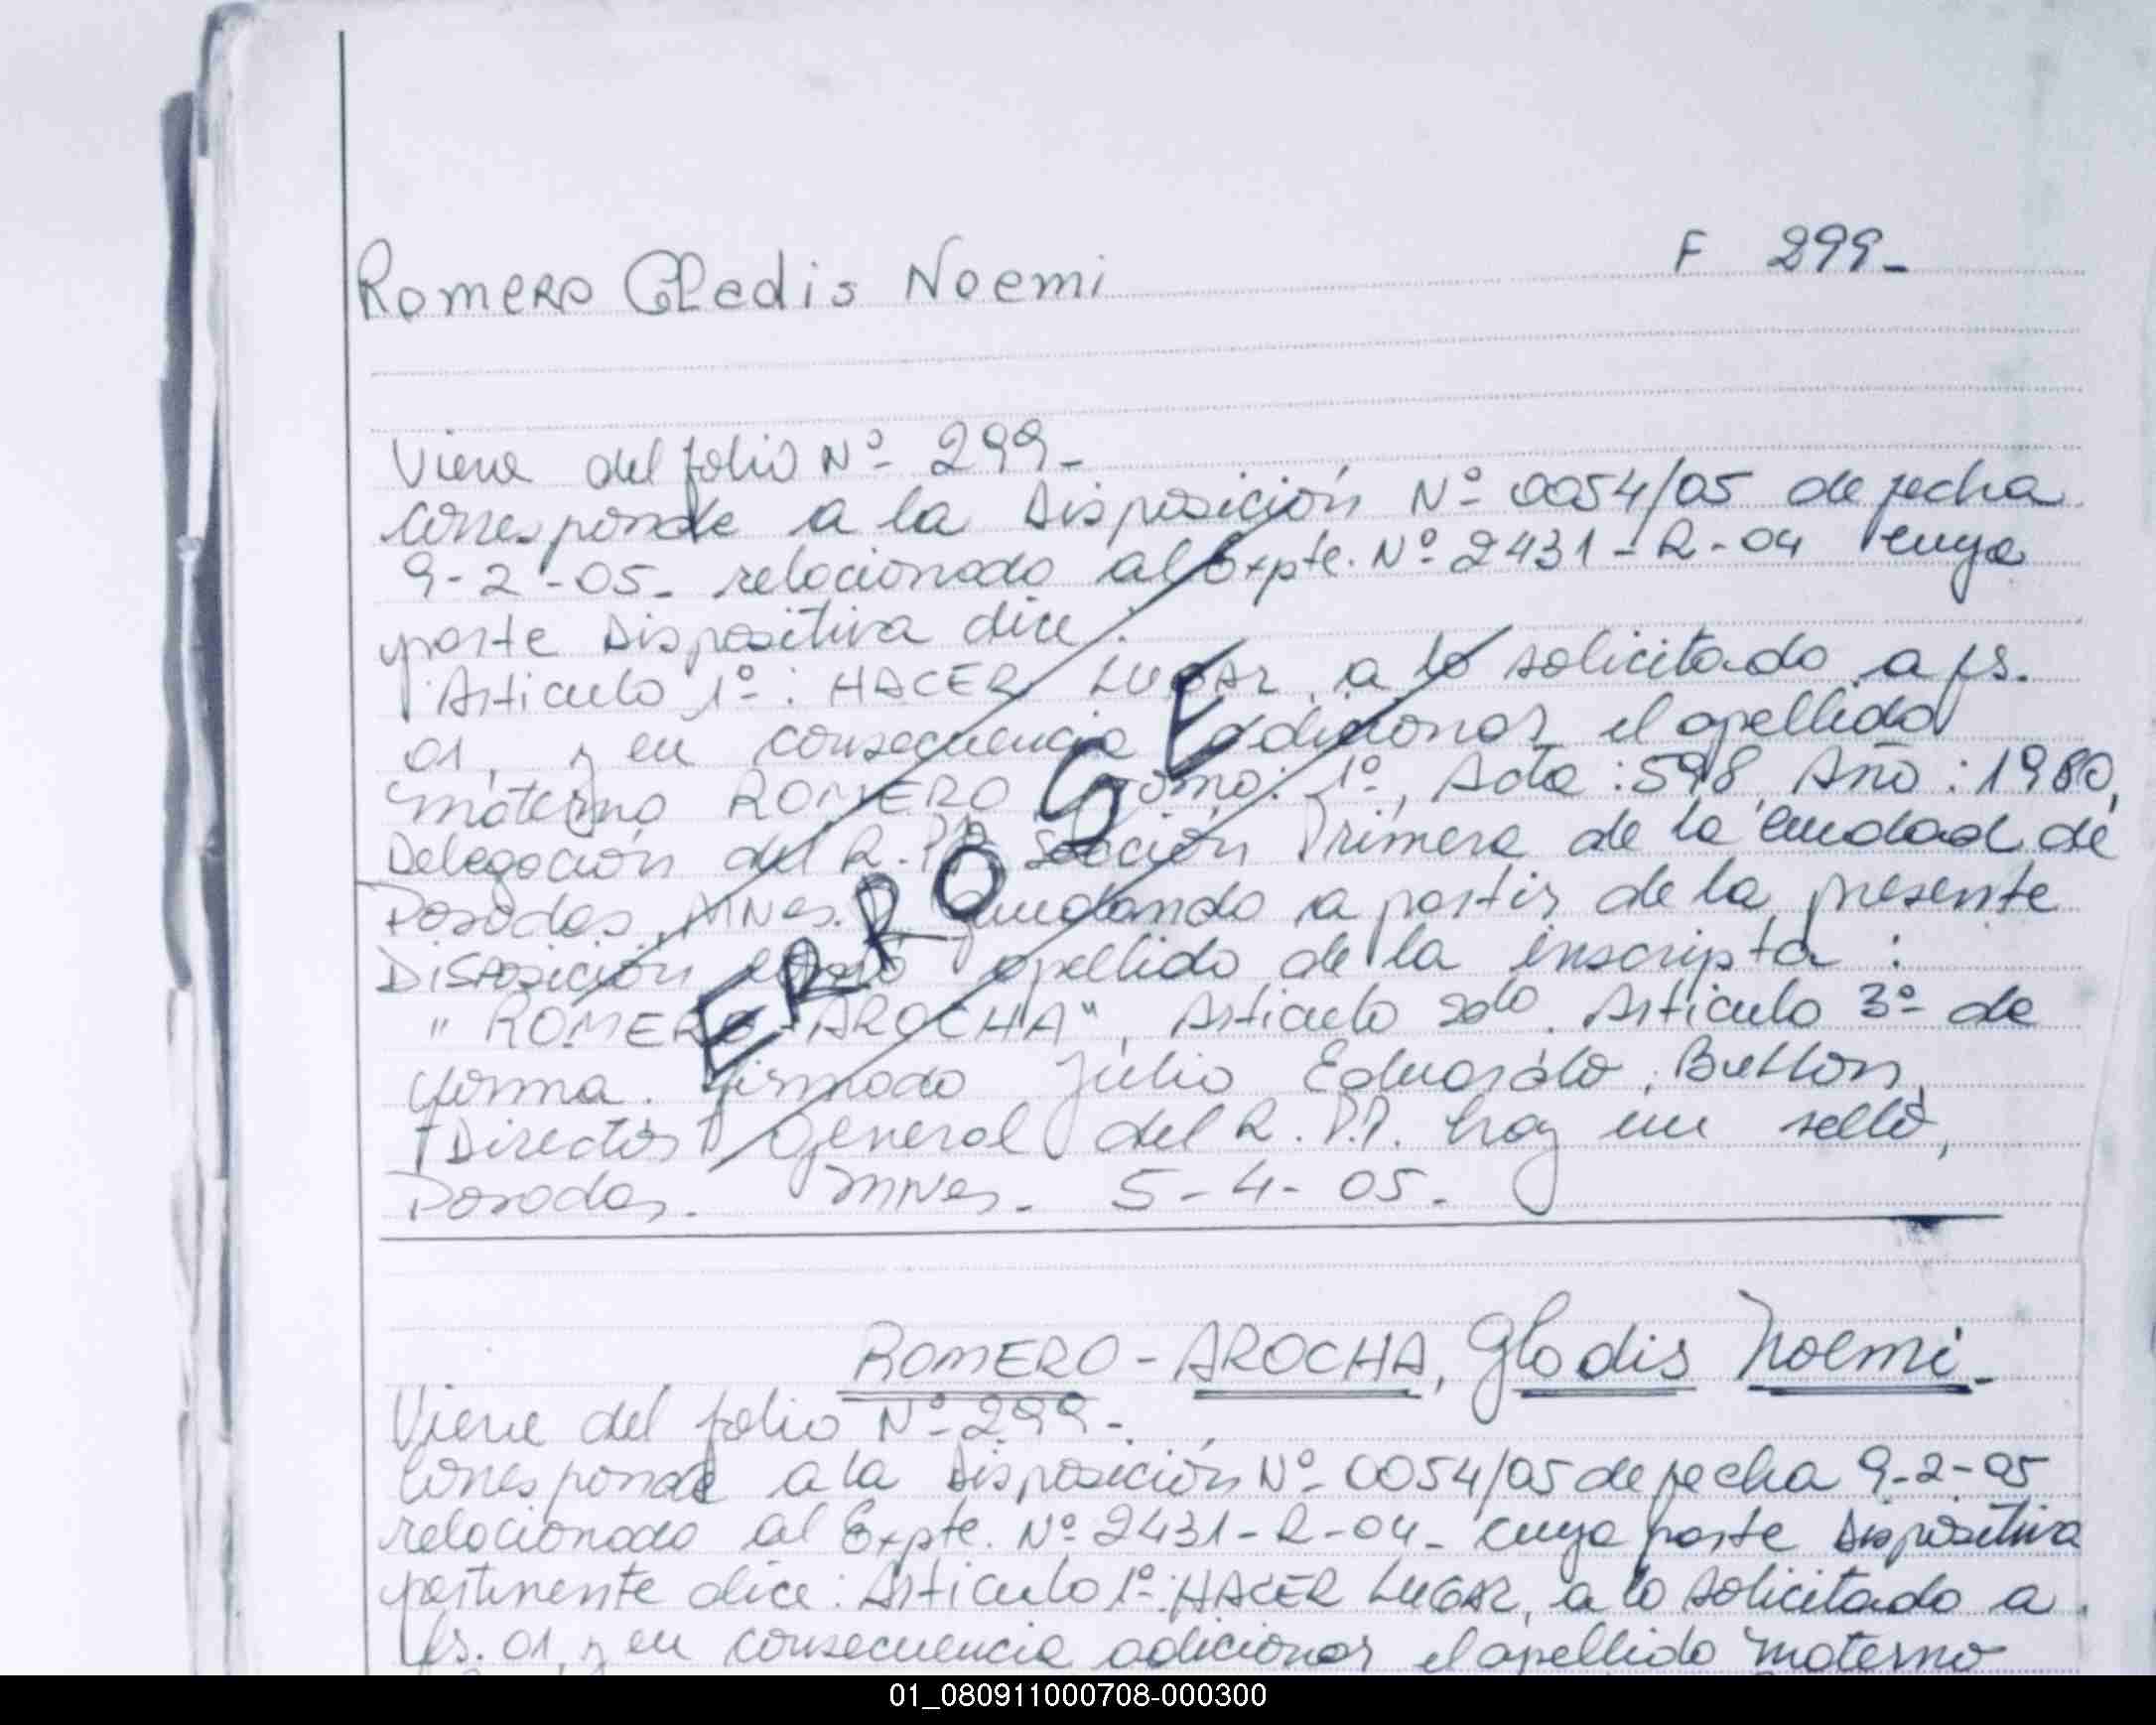 Romero Gledis Noemi
F 299-
Viene del folio Nº 299-
Corresponde a la Disposición Nº 0054/05 de fecha
9-2-05- relacionado al Expte. Nº 2431-R-04 cuya
parte Dispositiva dice:
Articulo 1º: HACER LUGAR, a lo solicitado a fs.
01, y en consecuencia adicionar el apellido
materno ROMERO Tomo: 1º, Acta: 598, Año: 1980,
Delegación del R.P.P. Sección Primera de la ciudad de
Posadas, MNes. quedando a partir de la presente
Disposición como apellido de la inscripta:
"ROMERO-AROCHA", Articulo 2do. Articulo 3º de
forma. firmado Julio Eduardo,
Director General del R.P.P. hay un sello,
Posadas. Mnes. 5-4-05.
ERROSE
ROMERO-AROCHA, Gladis Noemi-
Viene del folio Nº 299-.
Corresponde a la Disposición Nº 0054/05 de fecha 9-2-05
relacionado al Expte. Nº 2431-R-04- cuya parte Dispositiva
pertinente dice: Articulo 1º: HACER LUGAR, a lo solicitado a
fs. 01, y en consecuencia adicionar el apellido materno
01_080911000708-000300